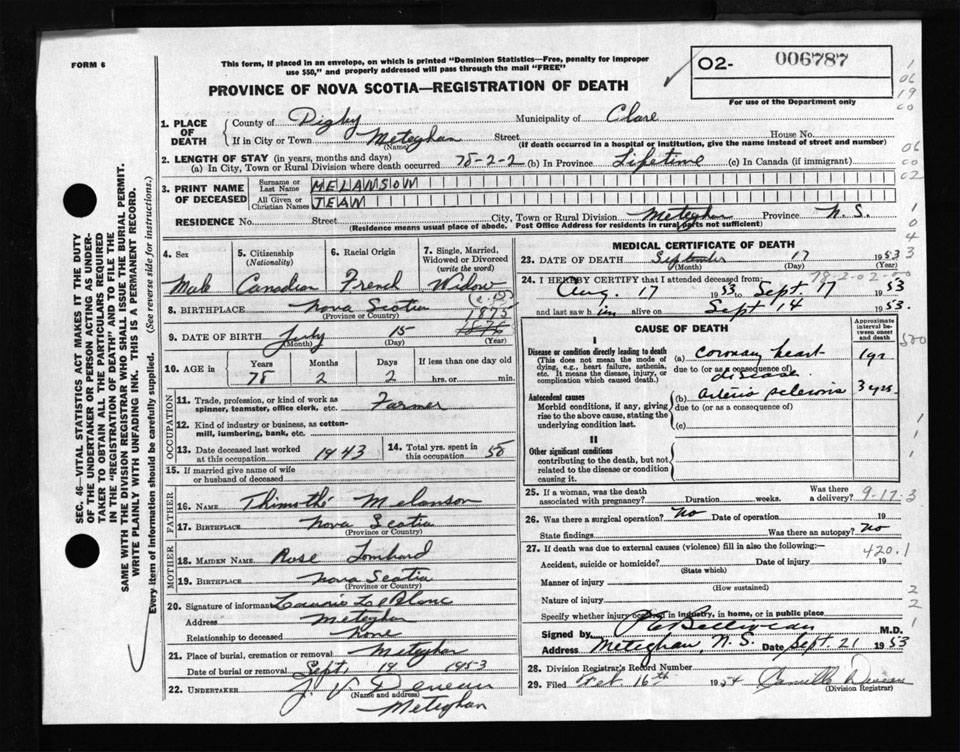 FORM 6
This form, if placed in an envelope, on which is printed "Dominion Statistics—Free, penalty for improper
use $50," and properly addressed will pass through the mail "FREE"
O2- 006787
For use of the Department only
PROVINCE OF NOVA SCOTIA—REGISTRATION OF DEATH
1. PLACE OF DEATH
County of Digby Municipality of Clare
If in City or Town Meteghan Street House No.
(Name) (If death occurred in a hospital or institution, give the name instead of street and number)
2. LENGTH OF STAY (in years, months and days)
(a) In City, Town or Rural Division where death occurred 78-2-2 (b) In Province Lifetime (c) In Canada (if immigrant)
3. PRINT NAME OF DECEASED
Surname or Last Name MELANSON
All Given or Christian Names JEAN
RESIDENCE No. Street City, Town or Rural Division Meteghan Province N.S.
(Residence means usual place of abode. Post Office Address for residents in rural parts not sufficient)
SEC. 46—VITAL STATISTICS ACT MAKES IT THE DUTY
OF THE UNDERTAKER OR PERSON ACTING AS UNDER-
TAKER TO OBTAIN ALL THE PARTICULARS REQUIRED
IN THE "REGISTRATION OF DEATH" AND TO FILE THE
SAME WITH THE DIVISION REGISTRAR WHO SHALL ISSUE THE BURIAL PERMIT.
WRITE PLAINLY WITH UNFADING INK. THIS IS A PERMANENT RECORD.
Every item of information should be carefully supplied. (See reverse side for instructions.)
4. Sex
Male
5. Citizenship (Nationality)
Canadian
6. Racial Origin
French
7. Single, Married, Widowed or Divorced (write the word)
Widow
8. BIRTHPLACE Nova Scotia
(Province or Country)
1875
9. DATE OF BIRTH July 15 1876
(Month) (Day) (Year)
10. AGE in Years Months Days If less than one day old
78 2 2 hrs. or min.
OCCUPATION
11. Trade, profession, or kind of work as
spinner, teamster, office clerk, etc. Farmer
12. Kind of industry or business, as cotton-
mill, lumbering, bank, etc.
13. Date deceased last worked
at this occupation 1943
14. Total yrs. spent in
this occupation 50
15. If married give name of wife
or husband of deceased
FATHER
16. NAME Thimothé Melanson
17. BIRTHPLACE Nova Scotia
(Province or Country)
MOTHER
18. MAIDEN NAME Rose Lombard
19. BIRTHPLACE Nova Scotia
(Province or Country)
20. Signature of informant LeBlanc
Address Meteghan
Relationship to deceased None
21. Place of burial, cremation or removal Meteghan
Date of burial or removal Sept. 19 1953
22. UNDERTAKER J. V. Deveau
(Name and address)
Meteghan
MEDICAL CERTIFICATE OF DEATH
23. DATE OF DEATH September 17 1953
(Month) (Day) (Year)
24. I HEREBY CERTIFY that I attended deceased from:
Aug. 17 1953 to Sept 17 1953
and last saw him alive on Sept 14 1953.
CAUSE OF DEATH
Approximate interval between onset and death
I
Disease or condition directly leading to death
(This does not mean the mode of
dying, e.g., heart failure, asthenia,
etc. It means the disease, injury, or
complication which caused death.)
(a) coronary heart 1 yr
due to (or as a consequence of)
disease
Antecedent causes
Morbid conditions, if any, giving
rise to the above cause, stating the
underlying condition last.
(b) arterio sclerosis 3 yrs.
due to (or as a consequence of)
(c)
II
Other significant conditions
contributing to the death, but not
related to the disease or condition
causing it.
25. If a woman, was the death
associated with pregnancy? Duration weeks. Was there a delivery? 9-17-3
26. Was there a surgical operation? No Date of operation 19
State findings Was there an autopsy? No
27. If death was due to external causes (violence) fill in also the following:— 420.1
Accident, suicide or homicide? Date of injury 19
(State which)
Manner of injury
(How sustained)
Nature of injury
Specify whether injury occurred in industry, in home, or in public place
Signed by Belliveau M.D.
Address Meteghan, N.S. Date Sept. 21 1953
28. Division Registrar's Record Number
29. Filed Oct. 16th 1954 Camille Deveau
(Division Registrar)